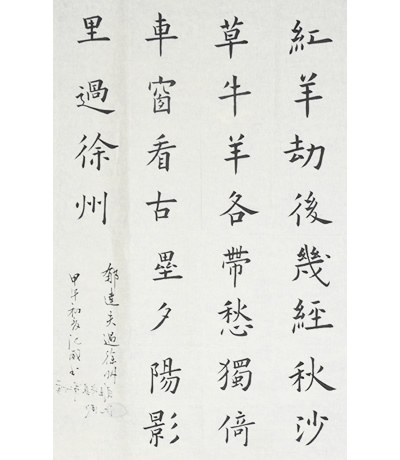 紅羊劫後幾經秋沙
草牛羊各帶愁獨倚
車窗看古壘夕陽影
里過徐州
郁達夫過徐州
甲午初